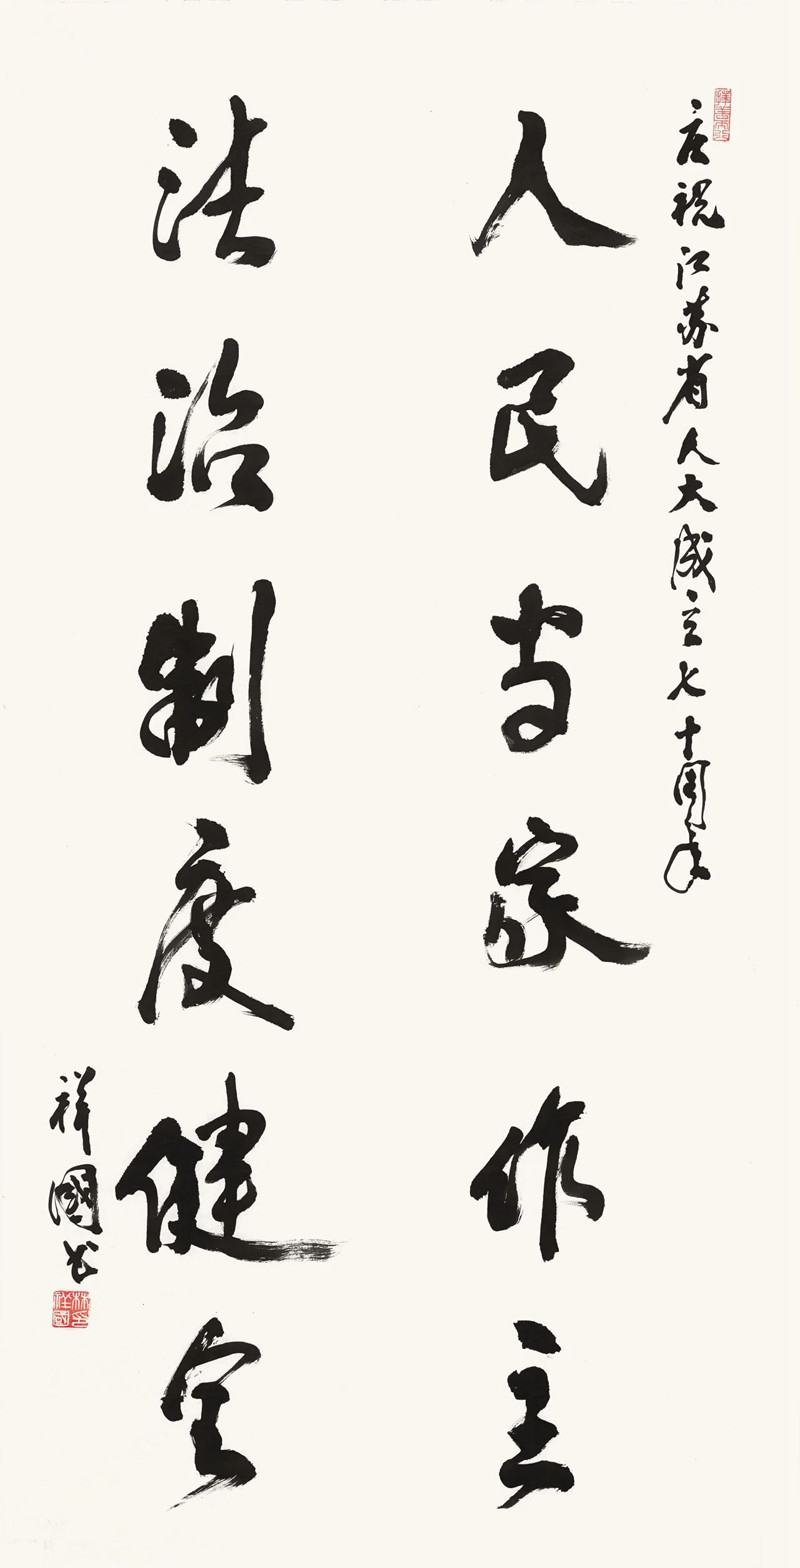 庆祝江苏省人大成立七十周年
人民当家作主
法治制度健全
祥國书
林祥國印